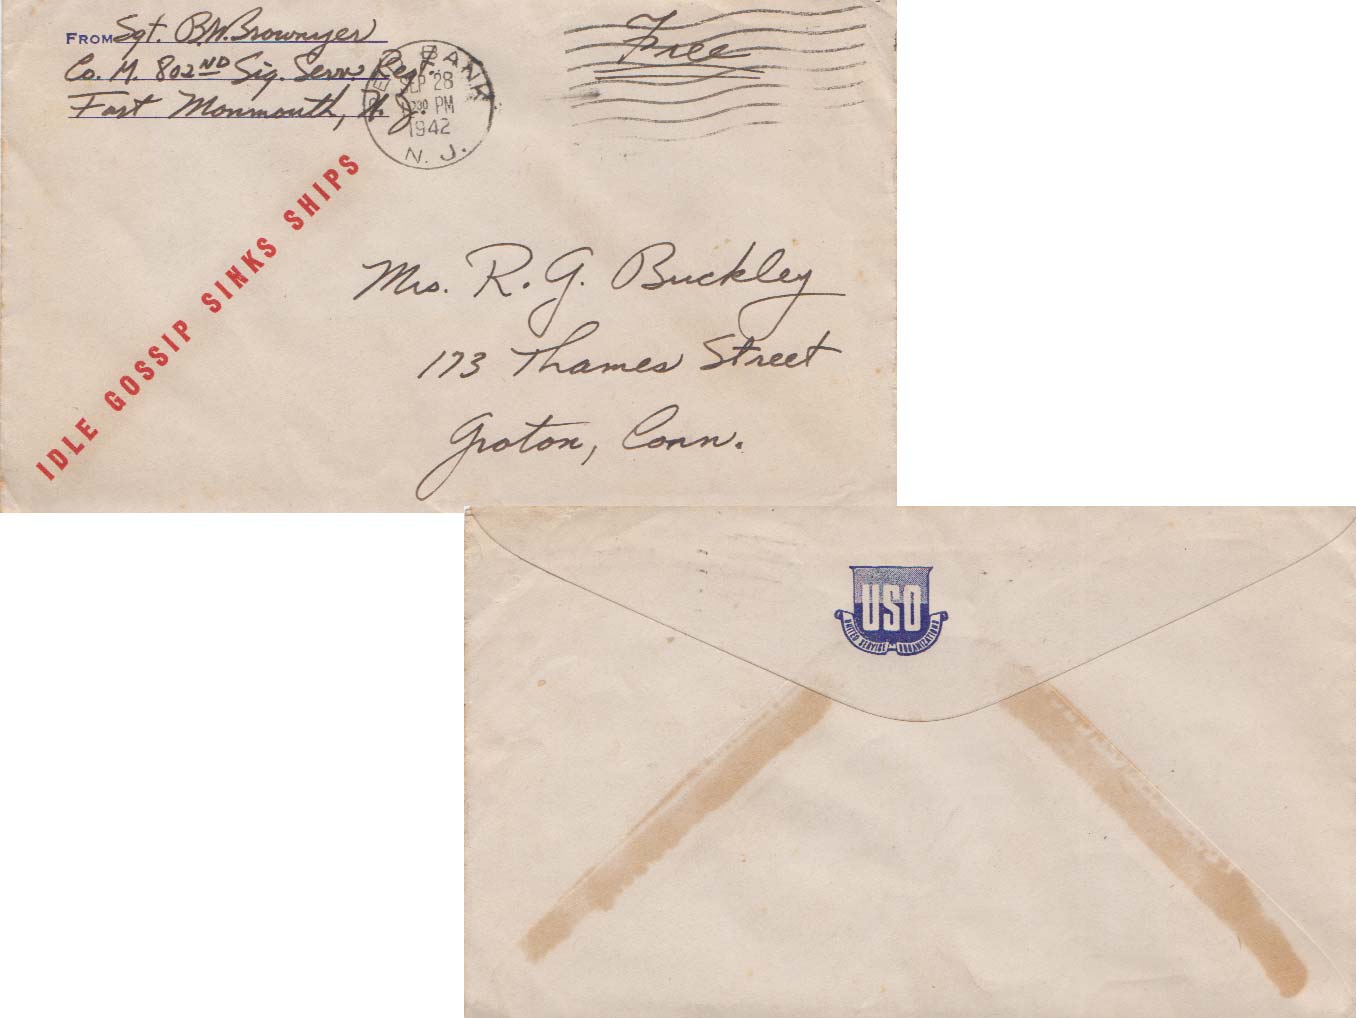 FROM Sgt. B.W. Brownyer
Co. M. 802ND Sig. Serv. Regt.
Fort Monmouth, N.J.
RED BANK
SEP 28
1230 PM
1942
N. J.
Free
IDLE GOSSIP SINKS SHIPS
Mrs. R. G. Buckley
173 Thames Street
Groton, Conn.
USO
UNITED SERVICE ORGANIZATIONS